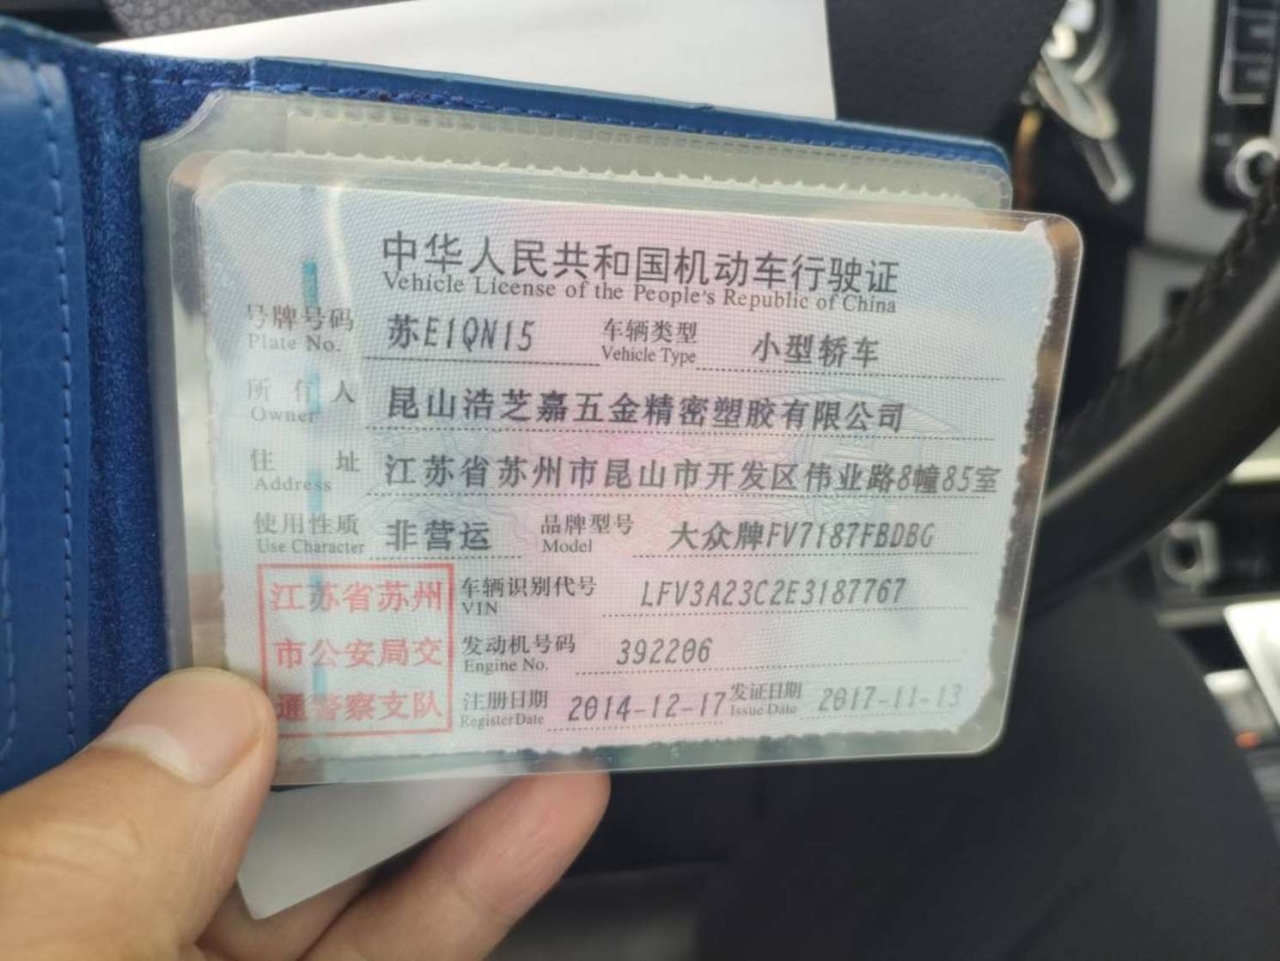 中华人民共和国机动车行驶证
Vehicle License of the People's Republic of China
号牌号码 苏E1QN15 车辆类型 小型轿车
Plate No. Vehicle Type
所有人 昆山浩芝嘉五金精密塑胶有限公司
Owner
住址 江苏省苏州市昆山市开发区伟业路8幢85室
Address
使用性质 非营运 品牌型号 大众牌FV7187FBDBG
Use Character Model
江苏省苏州 车辆识别代号 LFV3A23C2E3187767
VIN
市公安局交 发动机号码 392206
Engine No.
通警察支队 注册日期 2014-12-17 发证日期 2017-11-13
Register Date Issue Date